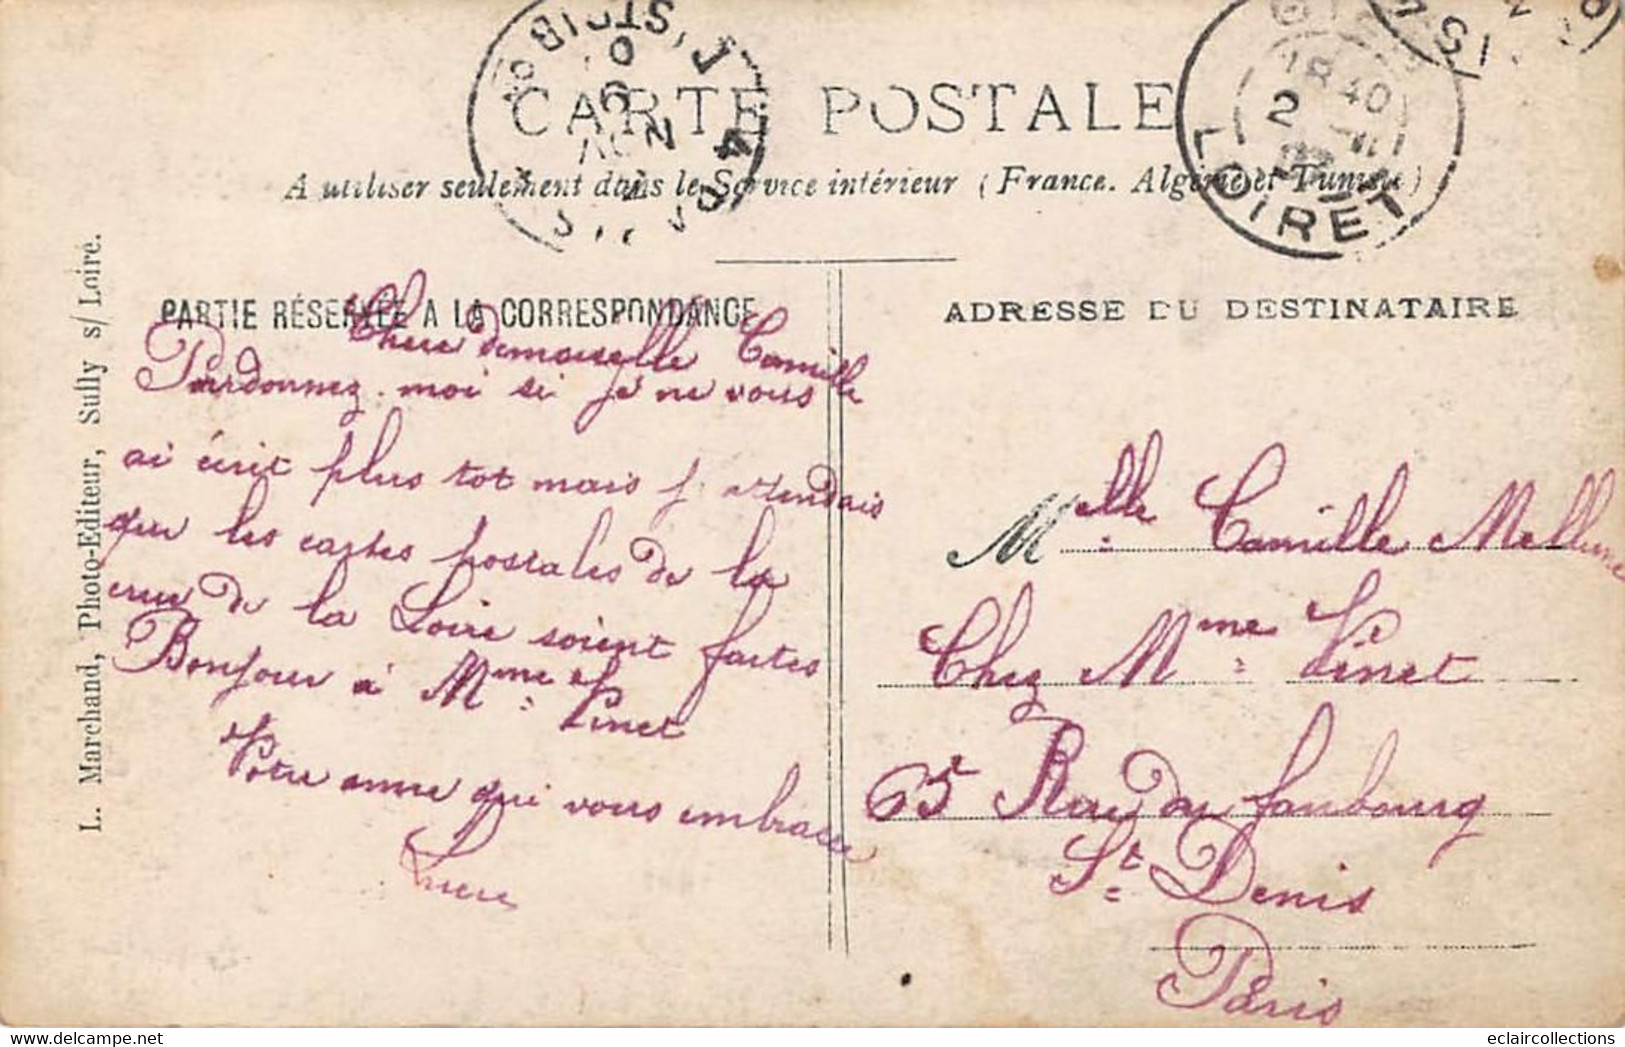 CARTE POSTALE
A utiliser seulement dans le Service intérieur (France. Algérie et Tunisie)
LOIRET
18 40
2
PARTIE RÉSERVÉE A LA CORRESPONDANCE
Chere demoiselle Camille
Pardonnez moi si je ne vous
ai écrit plus tot mais j atendais
que les cartes postales de la
crue de la Loire soient faites
Bonjour à Mme Pinet
Votre amie qui vous embrasse
L. Marchand, Photo-Editeur, Sully s/Loire.
ADRESSE DU DESTINATAIRE
Melle Camille
Chez Mme Pinet
65 Rue du faubourg
St Denis
Paris
eclaircollections